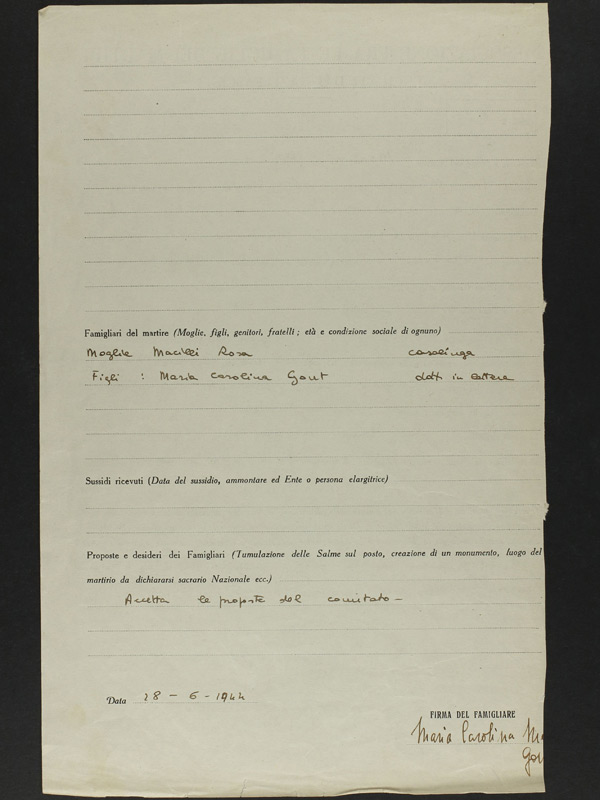 Famigliari del martire (Moglie, figli, genitori, fratelli ; età e condizione sociale di ognuno)
Moglie Macilli Rosa casalinga
Figli : Maria Carolina Gout dott. in lettere
Sussidi ricevuti (Data del sussidio, ammontare ed Ente o persona elargitrice)
Proposte e desideri dei Famigliari (Tumulazione delle Salme sul posto, creazione di un monumento, luogo del
martirio da dichiararsi sacrario Nazionale ecc.)
Accetta le proposte del comitato –
Data 28 – 6 - 1944
FIRMA DEL FAMIGLIARE
Maria Carolina